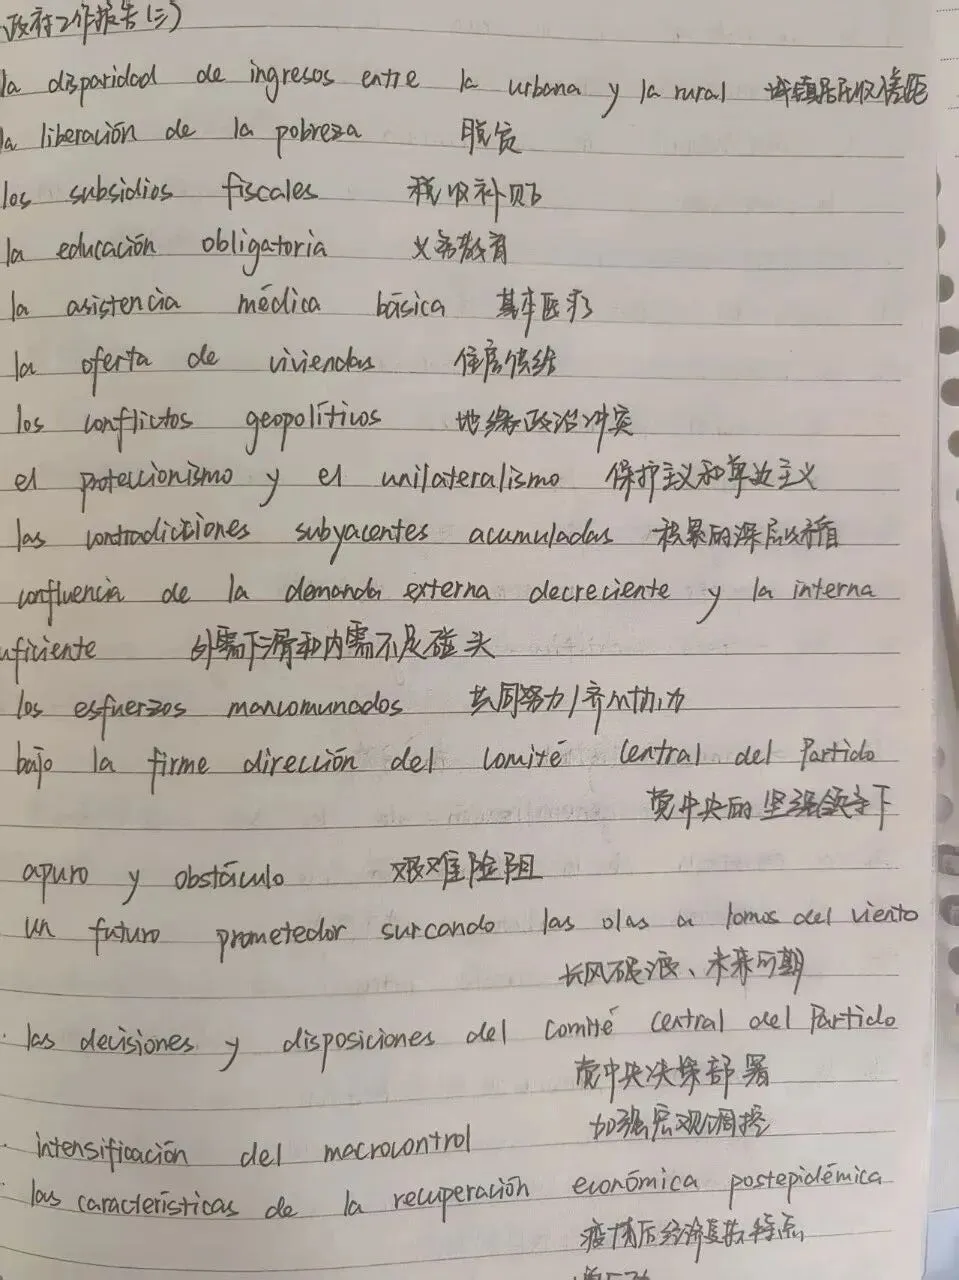 政府工作报告(三)
la disparidad de ingresos entre la urbana y la rural 城镇居民收入差距
la liberación de la pobreza 脱贫
los subsidios fiscales 税收补贴
la educación obligatoria 义务教育
la asistencia médica básica 基本医疗
la oferta de viviendas 住房供给
los conflictos geopolíticos 地缘政治冲突
el proteccionismo y el unilateralismo 保护主义和单边主义
las contradicciones subyacentes acumuladas 积累的深层次矛盾
confluencia de la demanda externa decreciente y la interna
uficiente 外需下滑和内需不足碰头
los esfuerzos mancomunados 共同努力/齐心协力
bajo la firme dirección del Comité Central del Partido
党中央的坚强领导下
apuro y obstáculo 艰难险阻
un futuro prometedor surcando las olas a lomos del viento
长风破浪、未来可期
· las decisiones y disposiciones del Comité Central del Partido
党中央决策部署
· intensificación del macrocontrol 加强宏观调控
· las características de la recuperación económica postepidémica
疫情后经济复苏特点